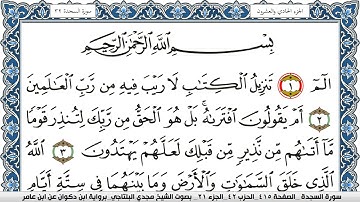 الجزء الحادي والعشرون
سورة السجدة ٣٢
بِسْمِ اللَّهِ الرَّحْمَٰنِ الرَّحِيمِ
الٓمٓ ١ تَنزِيلُ الْكِتَٰبِ لَا رَيْبَ فِيهِ مِن رَّبِّ الْعَٰلَمِينَ
٢ أَمْ يَقُولُونَ افْتَرَىٰهُ ۚ بَلْ هُوَ الْحَقُّ مِن رَّبِّكَ لِتُنذِرَ قَوْمًا
مَّآ أَتَىٰهُم مِّن نَّذِيرٍ مِّن قَبْلِكَ لَعَلَّهُمْ يَهْتَدُونَ ٣ اللَّهُ
الَّذِي خَلَقَ السَّمَٰوَٰتِ وَالْأَرْضَ وَمَا بَيْنَهُمَا فِي سِتَّةِ أَيَّامٍ
سورة السجدة الصفحة ٤١٥ الحزب ٤٢ الجزء ٢١ بصوت الشيخ مجدي البلتاجي برواية ابن ذكوان عن ابن عامر